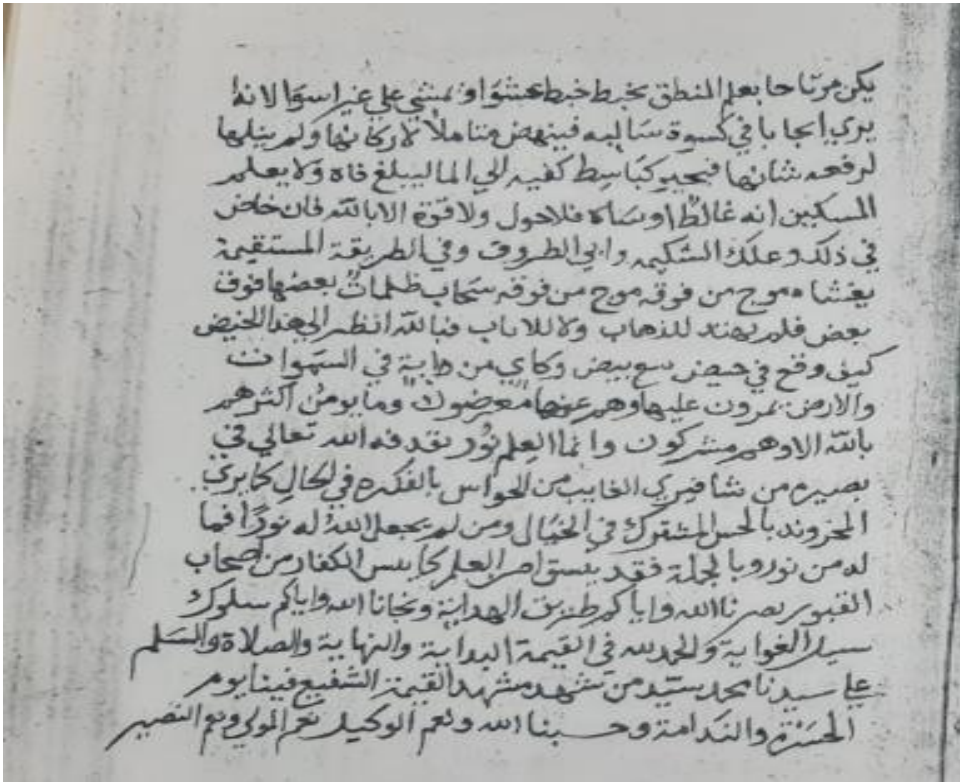 يكن مرتاحا بعلم المنطق يخبط خبط عشوا او يمشي علي غير استوا لانه
يري ايجابا في كسوة سالبه فينهض متاملا لاركانها ولم ينلها
لرفعه شانها فيجيه كباسط كفيه الي الما ليبلغ فاه ولا يعلم
المسكين انه غالط او ساه فلا حول ولا قوة الا بالله فان خاض
في ذلك وعلك الشكيمه وابي الطروق وفي الطريقة المستقيمة
يغشاه موج من فوقه موج من فوقه سحاب ظلمات بعضها فوق
بعض فلم يهتد للذهاب ولا للاياب فبالله انظر الي هذا الخيض
كيف وقع في حيص بيص وكاي من داية في السموات
والارض يمرون عليها وهم عنها معرضون وما يومن اكثرهم
بالله الا وهم مشركون وانما العلم نور يقدفه الله تعالي في
بصيرة من شا فيري الغايب من الحواس بالفكره في الحال كما يري
المخزون بالحس المشترك في الخيال ومن لم يجعل الله له نورا فما
له من نور وبالجملة فقد يئس من العلم كما يئس الكفار من اصحاب
القبور بصرنا الله واياكم طريق الهداية ونجانا الله واياكم سلوك
سبيل الغواية والحمد لله في القيمة البداية والنهاية والصلاة والسلم
علي سيدنا محمد سيد من شهد مشهد القيمة الشفيع فينا يوم
الحسرة والندامة وحسبنا الله ونعم الوكيل نعم المولي ونعم النصير